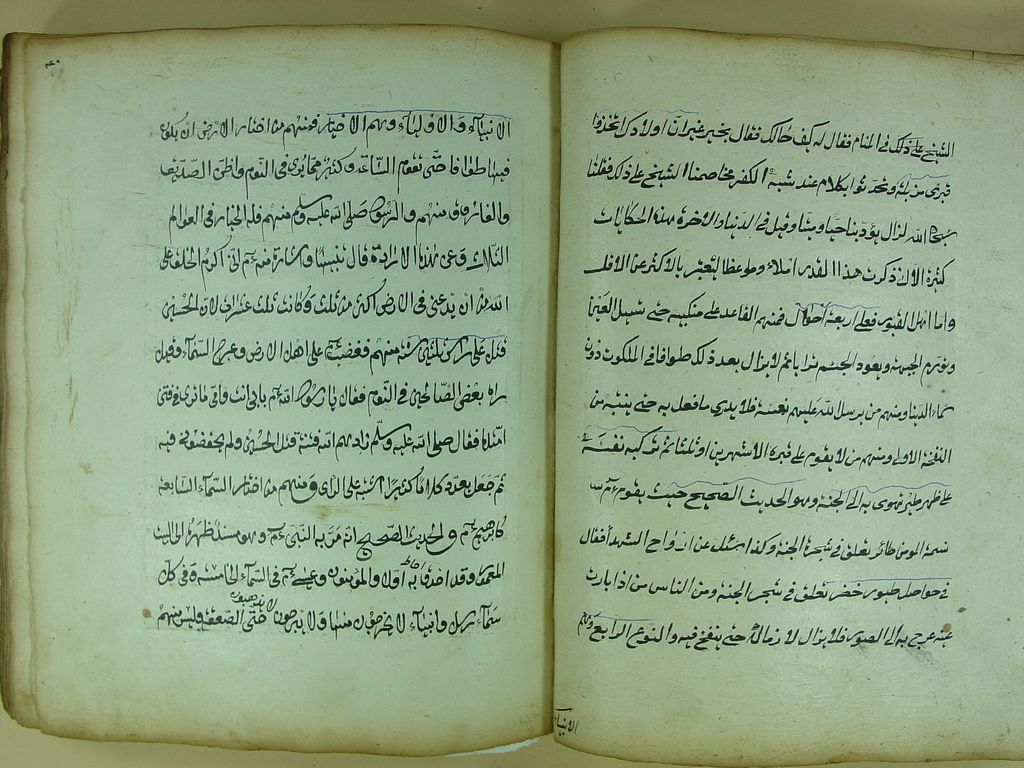 الشيخ على ذلك فى المنام فقال له كيف حالك فقال بخير غير ان اولادكم اتخذوا
قبرى مزبلة وتحدثوا بكلام عند شبه الكفر مخاصمنا الشيخ على ذلك فقلنا
سبحان الله لزال يؤذينا حيا وميتا وقيل فى الدنيا والآخرة بهذه الحكايات
كثيرة الا ان ذكرت هذا القدر املاء وموعظا ليعتبر بالاكثر عن الاقل
واما اهل القبور فعلى اربعة احوال فمنهم القاعد على منكبيه حتى تسيل العين
وتورم الجبهة ويعود الجسم ترابا ثم لا يزال بعد ذلك طوافا فى الملكوت دون
سماء الدنيا ومنهم من يرسل الله عليهم نعسة فلا يدرى ما فعل به حتى ينتبه من
النفخة الاولى ومنهم من لا يقوم على قبره الا شهرين او ثلثا ثم تركب نفسه
على ظهر طير تهوى به الى الجنة وهو الحديث الصحيح حيث يقول عم
نسمة المومن طائر يعلق فى شجرة الجنة وكذا سئل عن ارواح الشهدا فقال
فى حواصل طيور خضر تعلق فى شجر الجنة ومن الناس من اذا بارت
عينه عرج به الى الصور فلا يزال لازما له حتى ينفخ فيه والنوع الرابع وهم
الانبيا
الانبيآء والاوليآء وهم الاخيار فمنهم من اختار الارض ان يكون
فيها طوافا حتى تقوم الساعة وكثير مما يرى فى النوم واظن الصديق
والفاروق منهم والرسول صلى الله عليه وسلم منهم فله الخيار فى العوالم
الثلاث وعن هذه الارادة قال تنبيها واشارة منه عم انى اكرم الخلق على
الله من ان يدعنى فى الارض اكثر من ثلث وكانت ثلث عشرات لان الحسين
قتل على راس ثلثين سنة منهم فغضب على اهل الارض وعرج السمآء وقيل
راه بعض الصالحين فى النوم فقال يا رسول الله عم بابى انت وامى ما ترى فى فتن
امتك فقال صلى الله عليه وسلم زادهم الله فتنة قتل الحسين ولم يحفظونى فيه
ثم جعل يعدد كلاما كثيرا اشتبه على الراى ومنهم من اختار السمآء السابعة
كابرهيم عم والحديث الصحيح انه مر به النبى عم وهو مسند ظهره الى البيت
المعمور وقد احدق به اولاد المؤمنون وعيسى عم فى السمآء الخامسة وفى كل
سمآء رسل وانبيآء لا يخرجون منها ولا يبرحون حتى الصعقة وليس منهم